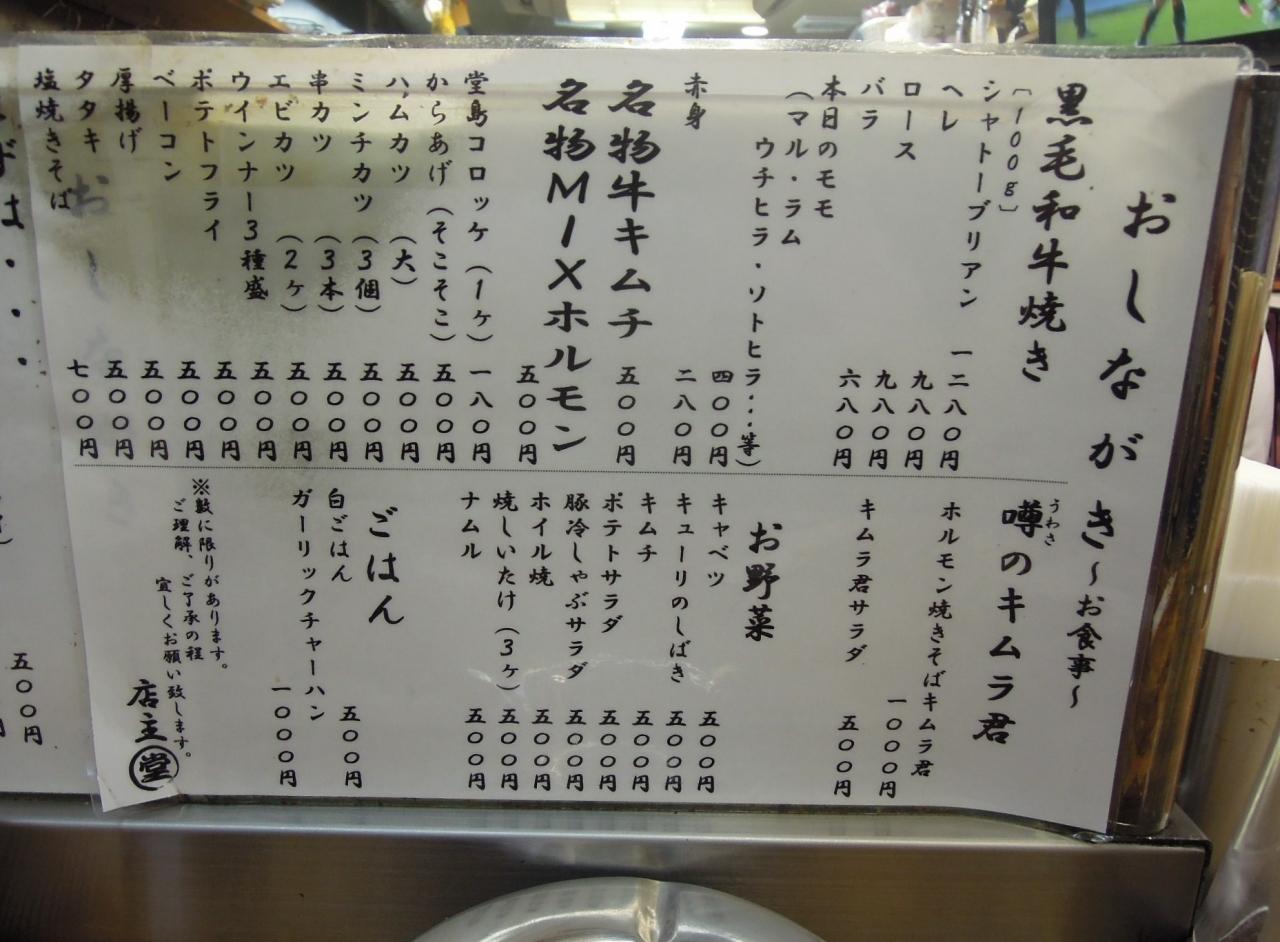 おしながき～お食事～
黒毛和牛焼き
〔100g〕
シャトーブリアン 一二八〇円
ヘレ 九八〇円
ロース 九八〇円
バラ 六八〇円
本日のモモ
（マル・ラム
ウチヒラ・ソトヒラ・・・等） 四〇〇円
赤身 二八〇円
名物牛キムチ 五〇〇円
名物MIXホルモン 五〇〇円
堂島コロッケ（1ケ） 一八〇円
からあげ（そこそこ） 五〇〇円
ハムカツ（大） 五〇〇円
ミンチカツ（3個） 五〇〇円
串カツ（3本） 五〇〇円
エビカツ（2ケ） 五〇〇円
ウインナー3種盛 五〇〇円
ポテトフライ 五〇〇円
ベーコン 五〇〇円
厚揚げ 五〇〇円
タタキ 五〇〇円
塩焼きそば 七〇〇円
うわさ
噂のキムラ君
ホルモン焼きそばキムラ君 一〇〇〇円
キムラ君サラダ 五〇〇円
お野菜
キャベツ 五〇〇円
キューリのしばき 五〇〇円
キムチ 五〇〇円
ポテトサラダ 五〇〇円
豚冷しゃぶサラダ 五〇〇円
ホイル焼 五〇〇円
焼しいたけ（3ケ） 五〇〇円
ナムル 五〇〇円
ごはん
白ごはん 五〇〇円
ガーリックチャーハン 一〇〇〇円
※数に限りがあります。
ご理解、ご了承の程
宜しくお願い致します。
店主 堂
ずは・・・
五〇〇円